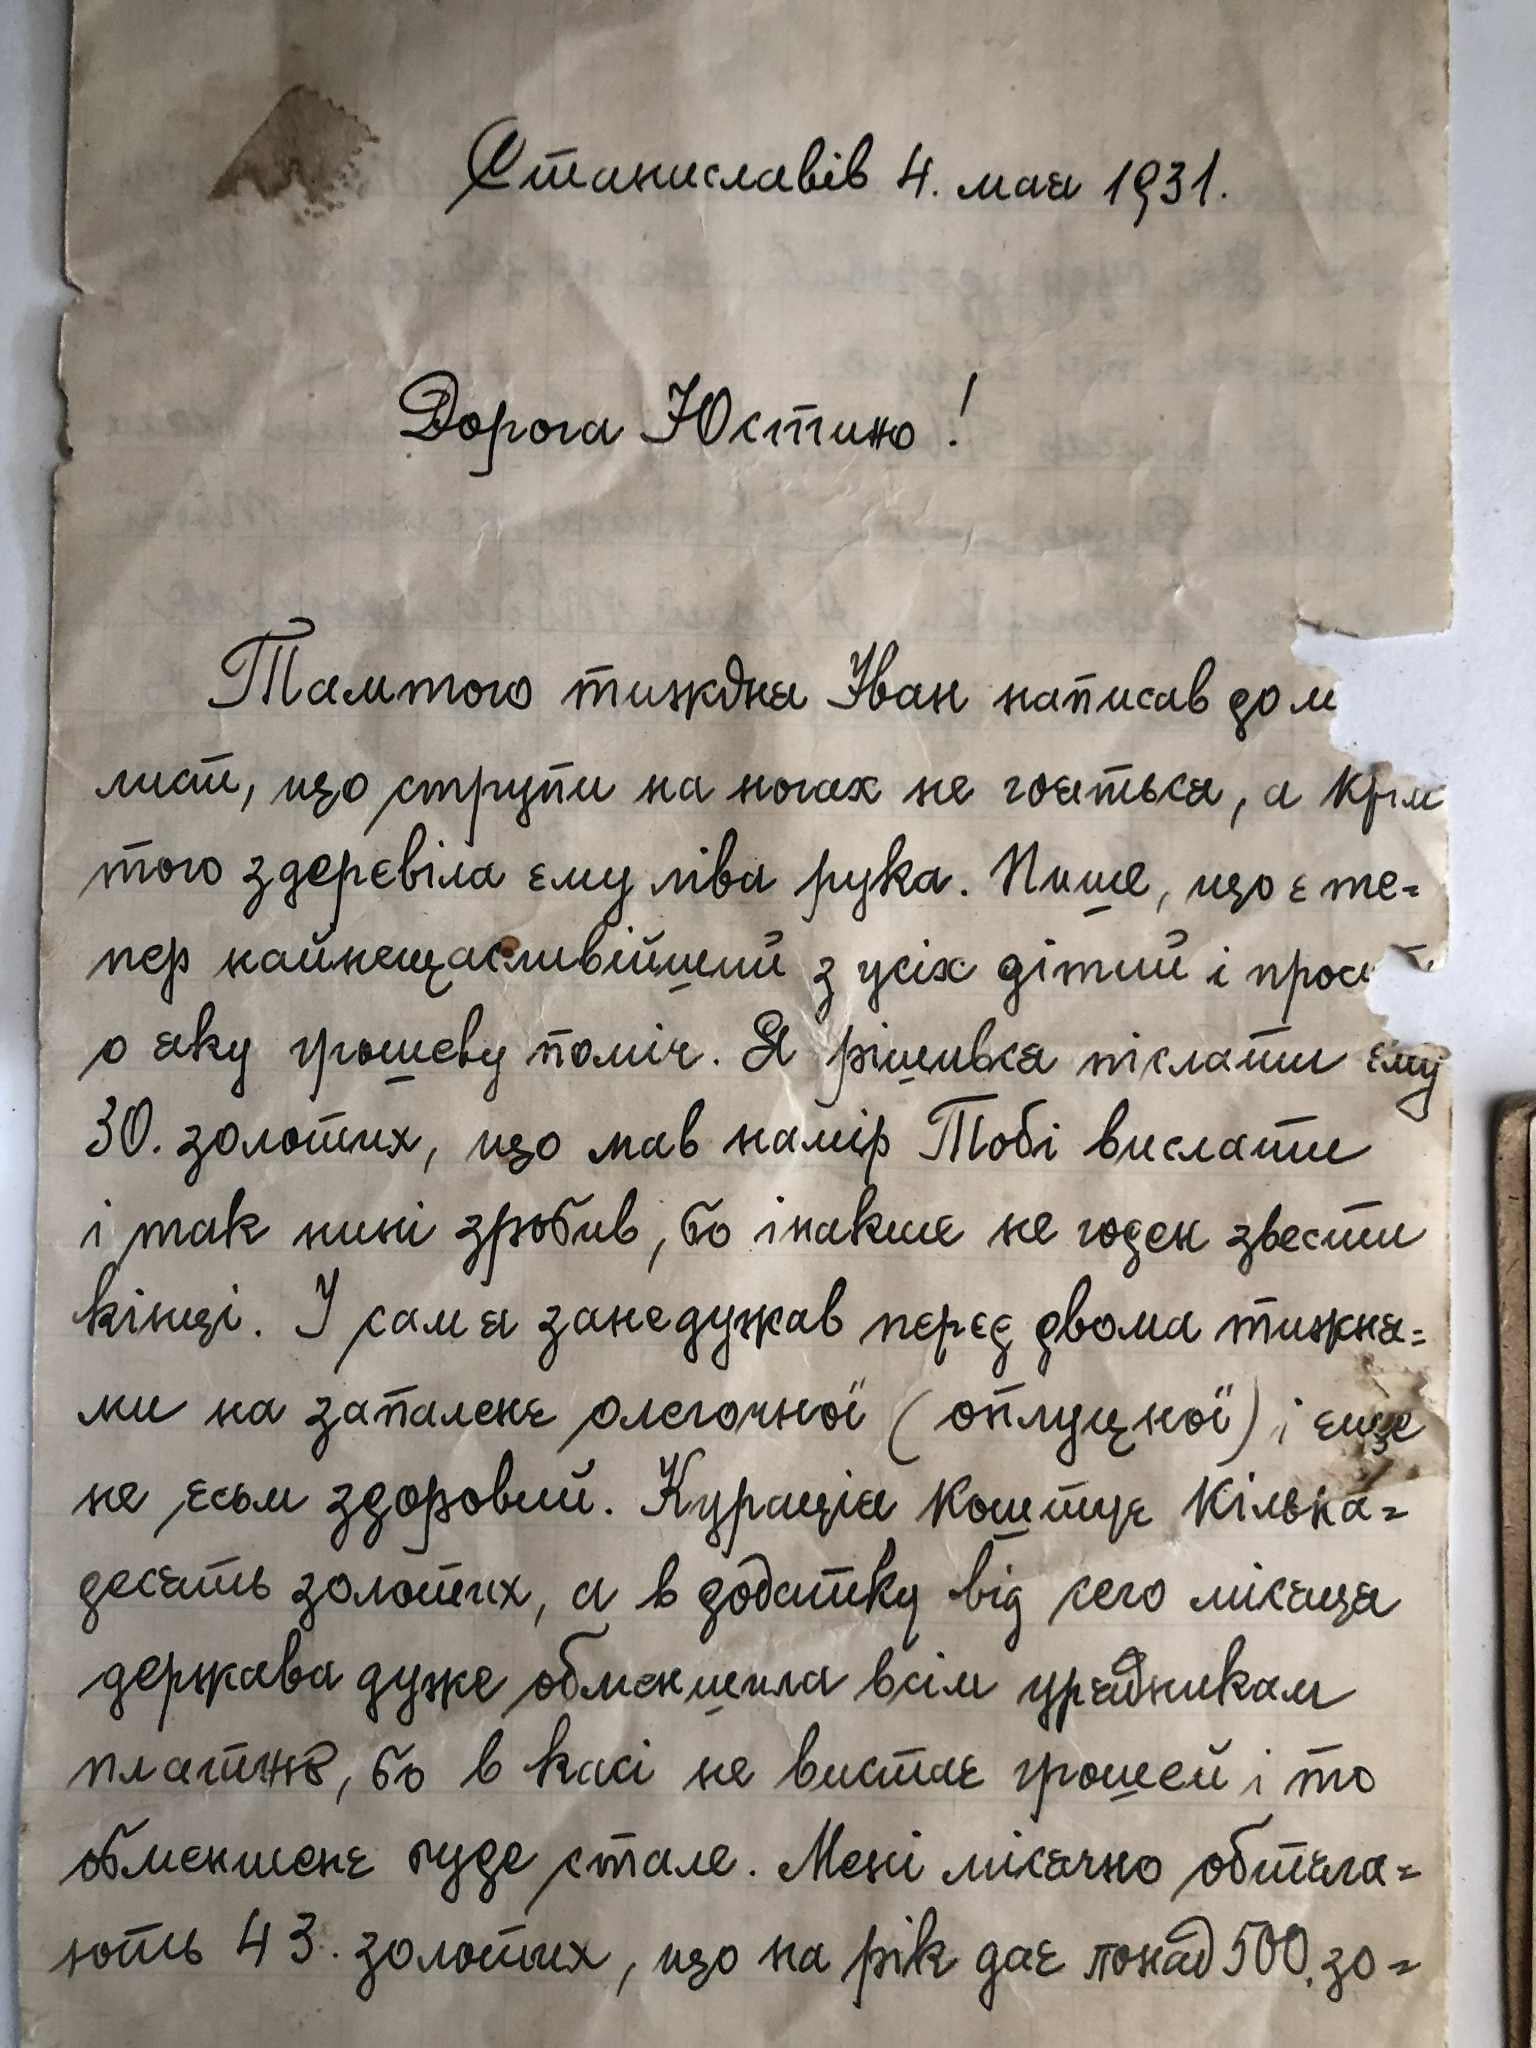 Станиславів 4. мая 1931.
Дорога Юстино!
Тамтого тиждня Іван написав до м
лист, що струпи на ногах не гояться, а крім
того здеревіла єму ліва рука. Пише, що є те=
пер найнещасливійший з усіх дітий і
о яку грошеву поміч. Я рішився післати єму
30. золотих, що мав намір Тобі вислати
і так нині зробив, бо інакше не годен звести
кінці. І сам я занедужав перед двома тижня=
ми на запаленє олегочної (оплуцної) і єще
не єсьм здоровий. Курація коштує кілька=
десять золотих, а в додатку від сего місяця
держава дуже обменшила всім урядникам
платню, бо в касі не вистає грошей і то
обменшенє буде стале. Мені місячно обтина=
ють 43. золотих, що на рік дає понад 500. зо=